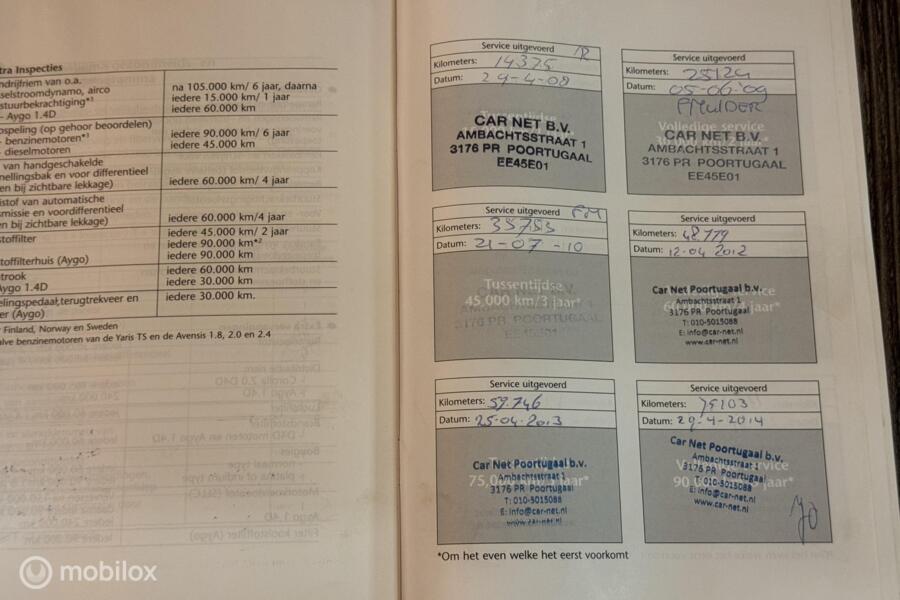 tra Inspecties
ndrijfriem van o.a.
selstroomdynamo, airco
stuurbekrachtiging*³
- Aygo 1.4D
na 105.000 km/ 6 jaar, daarna
iedere 15.000 km/ 1 jaar
iedere 60.000 km
pspeling (op gehoor beoordelen)
- benzinemotoren*³
- dieselmotoren
iedere 90.000 km/ 6 jaar
iedere 45.000 km
van handgeschakelde
nellingsbak en voor differentieel
en bij zichtbare lekkage)
iedere 60.000 km/ 4 jaar
istof van automatische
smissie en voordifferentieel
en bij zichtbare lekkage)
iedere 60.000 km/4 jaar
stoffilter
iedere 45.000 km/ 2 jaar
iedere 90.000 km*²
stoffilterhuis (Aygo)
iedere 90.000 km
trook
iedere 60.000 km
Aygo 1.4D
iedere 30.000 km
elingspedaal,terugtrekveer en
er (Aygo)
iedere 30.000 km.
Finland, Norway en Sweden
alve benzinemotoren van de Yaris TS en de Avensis 1.8, 2.0 en 2.4
Service uitgevoerd
Kilometers: 14375
Datum: 29-4-08
CAR NET B.V.
AMBACHTSSTRAAT 1
3176 PR POORTUGAAL
EE45E01
Service uitgevoerd
Kilometers: 25124
Datum: 05-06-09
PMULDER
Volledige service
CAR NET B.V.
AMBACHTSSTRAAT 1
3176 PR POORTUGAAL
EE45E01
Service uitgevoerd
Kilometers: 35753
Datum: 21-07-10
Tussentijdse
45,000 km/3 jaar*
Service uitgevoerd
Kilometers: 48.779
Datum: 12-04 2012
Car Net Poortugaal b.v.
Ambachtsstraat 1
3176 PR Poortugaal
T: 010-5015088
E: info@car-net.nl
www.car-net.nl
Service uitgevoerd
Kilometers: 59.746
Datum: 25-04-2013
Car Net Poortugaal b.v.
Ambachtsstraat 1
3176 PR Poortugaal
T: 010-5015088
E: info@car-net.nl
www.car-net.nl
Service uitgevoerd
Kilometers: 75103
Datum: 29-4-2014
Car Net Poortugaal b.v.
Ambachtsstraat 1
3176 PR Poortugaal
T: 010-5015088
E: info@car-net.nl
www.car-net.nl
*Om het even welke het eerst voorkomt
mobilox